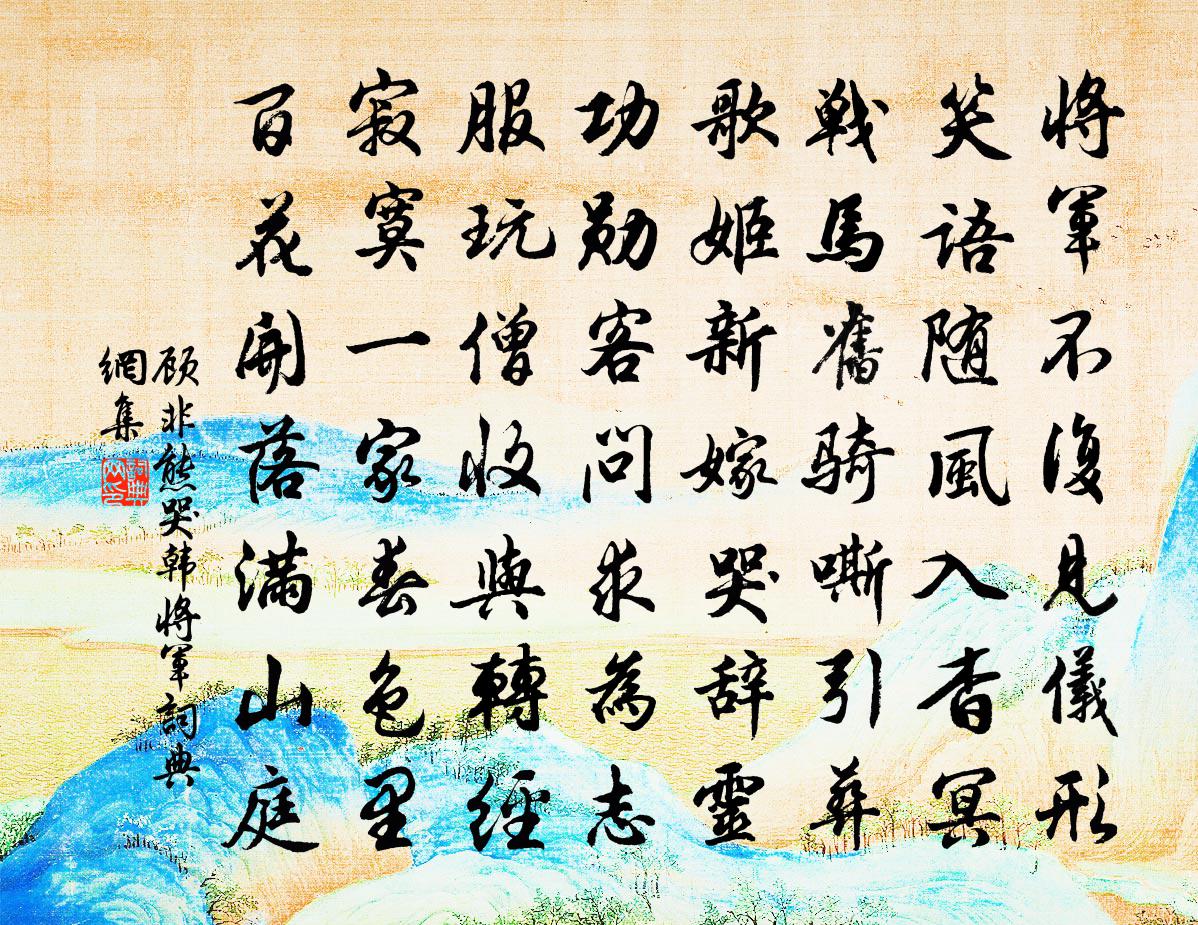 将軍不復見儀形
笑語随風入杳冥
戦馬舊騎嘶引葬
歌姬新嫁哭辞靈
功勛客問求為志
服玩僧收與轉經
寂寞一家春色里
百花開落滿山庭
顾非熊哭韩将軍詞典
網集
詞典网印